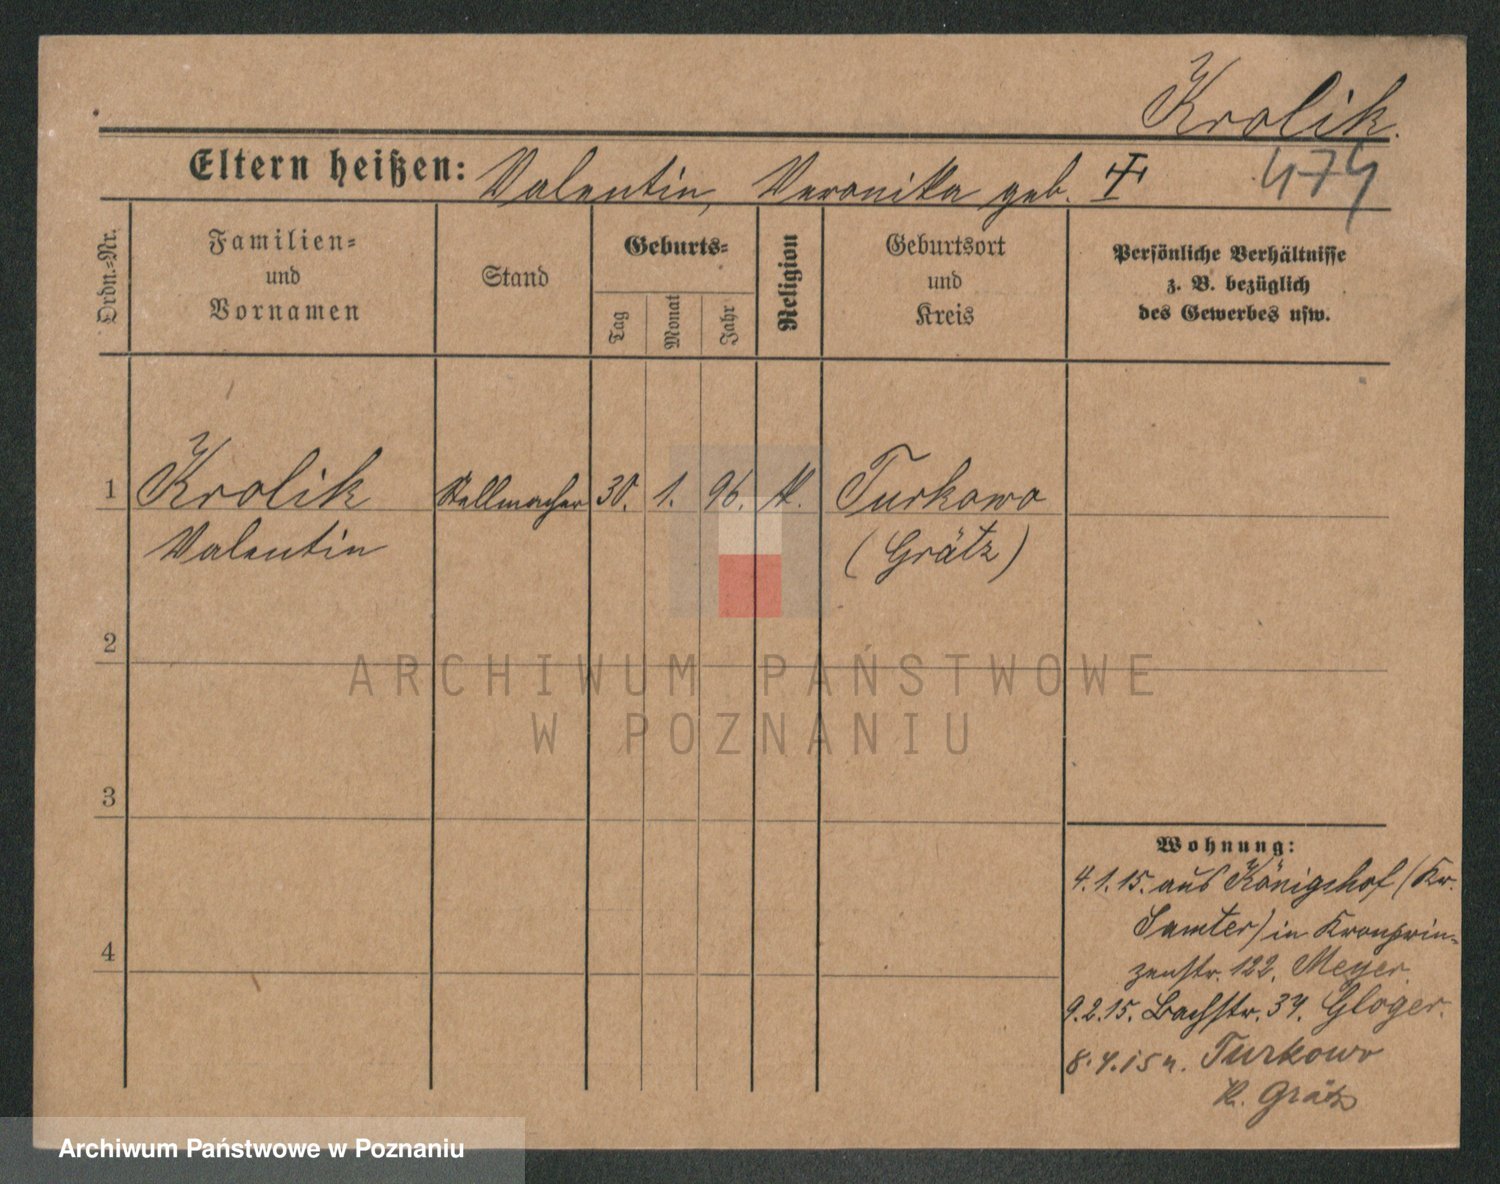 Krolik.
474
Eltern heißen: Valentin, Veronika geb.
Ordn.=Nr.
Familien=
und
Vornamen
Stand
Geburts=
Tag
Monat
Jahr
Religion
Geburtsort
und
Kreis
Persönliche Verhältnisse
z. B. bezüglich
des Gewerbes usw.
1 Krolik Stellmacher 30. 1. 96. k. Turkowo
Valentin (Grätz)
2
3
4
Wohnung:
4.1.15. aus Königshof (Kr.
Samter) in Kronprin-
zenstr. 122. Meyer.
9.2.15. Bachstr. 34. Gloger.
8.4.15 n. Turkowo
K. Grätz
ARCHIWUM PAŃSTWOWE
W POZNANIU
Archiwum Państwowe w Poznaniu